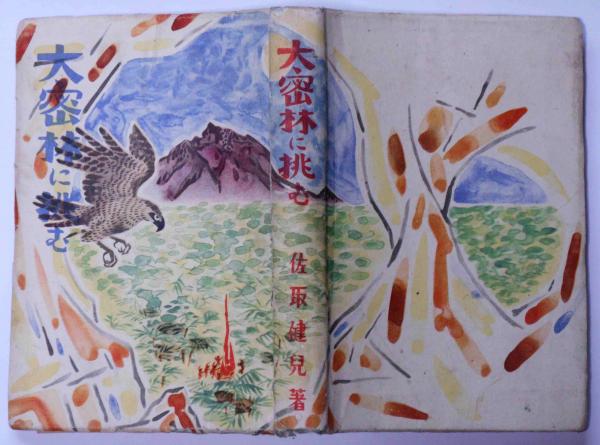 大密林に挑む
大密林に挑む
佐取健兒著